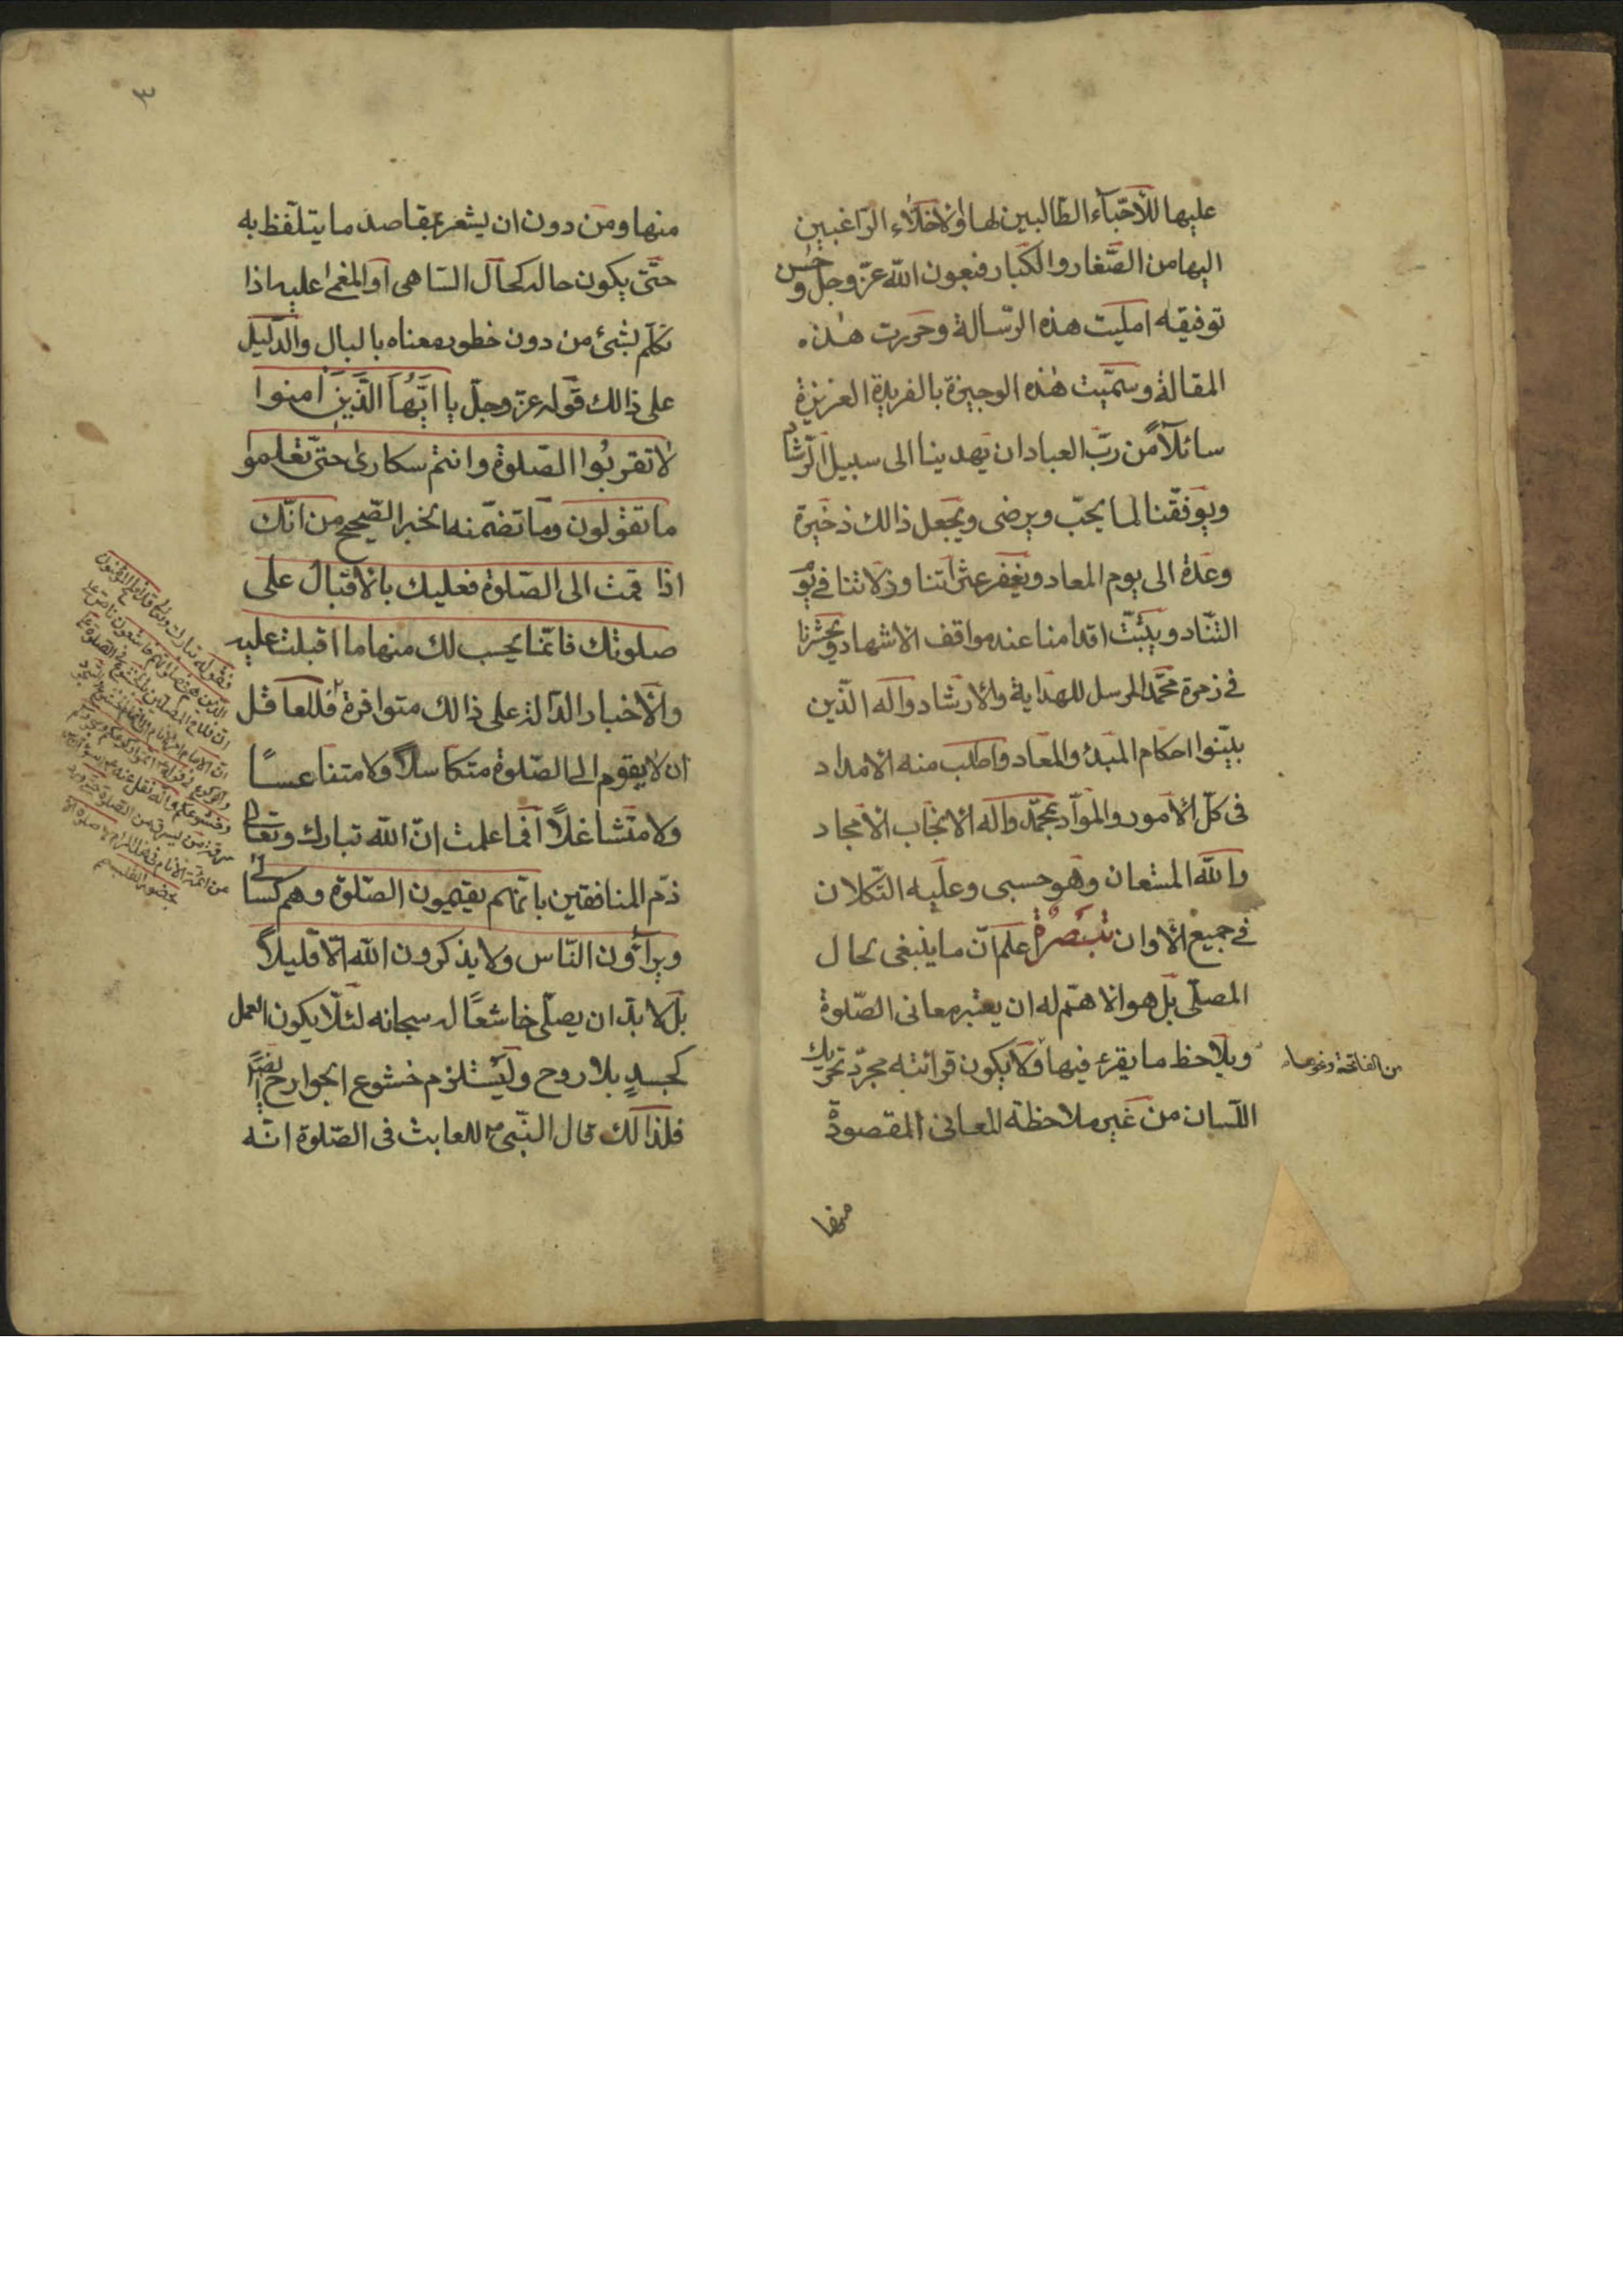 عليها للأحبّاء الطّالبين لها والأخلاّء الرّاغبين
اليها من الصّغار والكبار فبعون اللّه عزّ وجلّ وحسن
توفيقه امليت هذه الرّسالة وحررت هذه
المقالة وسمّيت هذه الوجيزة بالفريدة العزيزة
سائلاً من ربّ العباد ان يهدينا الى سبيل الرّشاد
ويوفّقنا لما يحبّ ويرضى ويجعل ذالك ذخيرة
وعدة الى يوم المعاد ويغفر عثراتنا وزلاتنا في يوم
التّناد ويثبّت اقدامنا عند مواقف الاشهاد ويحشرنا
في زمرة محمّد المرسل للهداية والارشاد وآله الّذين
بيّنوا احكام المبدء والمعاد واطلب منه الامداد
في كلّ الأمور والموادّ بمحمّد وآله الانجاب الأمجاد
واللّه المستعان وهو حسبى وعليه التّكلان
في جميع الأوان تبصرة اعلم انّ ما ينبغى بحال
المصلّى بل هو الاهمّ له ان يعتبر معانى الصّلوة
ويلاحظ ما يقرء فيها ولا يكون قرائته مجرّد تحريك
من الفاتحة وغيرها
اللّسان من غير ملاحظة المعانى المقصودة
منها
٣
منها ومن دون ان يشعر بمقاصد ما يتلفّظ به
حتّى يكون حاله كحال السّاهى او المغمى عليه اذا
تكلّم بشئ من دون خطور معناه بالبال والدّليل
على ذالك قوله عزّ وجلّ يا ايّها الّذين امنوا
لا تقربوا الصّلوة وانتم سكارى حتّى تعلموا
ما تقولون وما تضمّنه الخبر الصّحيح من انّك
اذا قمت الى الصّلوة فعليك بالأقبال على
صلوتك فانّما يحسب لك منها ما اقبلت عليه
والأخبار الدّالة على ذالك متوافرة فللعاقل
ان لا يقوم الى الصّلوة متكاسلاً ولا متناعسًا
ولا متشاغلاً افما علمت انّ اللّه تبارك وتعالى
ذمّ المنافقين بانّهم يقيمون الصّلوة وهم كسالى
ويراؤون النّاس ولا يذكرون اللّه الّا قليلاً
بل لا بدّ ان يصلّى خاشعًا له سبحانه لئلّا يكون العمل
كجسدٍ بلا روح وليستلزم خشوع الجوارح ايضًا
فلذالك قال النّبى للعابث في الصّلوة انّه